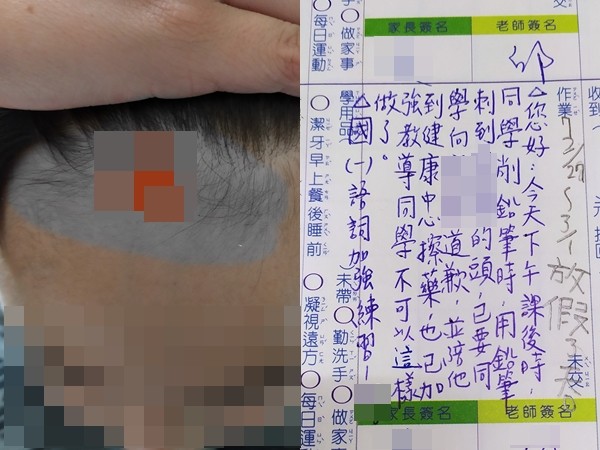 每日運動
做家事
家長簽名
老師簽名
收到
作業
2/27～3/1放假3天
未交
△您好：今天下午課後時，
同學削鉛筆時，用鉛筆
刺到
的頭，已要同
學向
道歉，並陪他
到健康中心擦藥，也已加
強教導同學不可以這樣
做了。
△國(一)語詞加強練習-1
學用品
未帶
潔牙早上餐後睡前
凝視遠方
勤洗手
每日運動
做家事
家長簽名
老師簽名